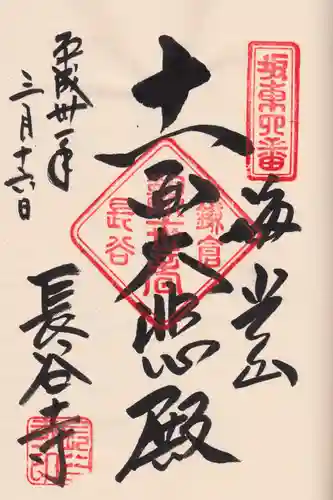 坂東四番
海光山
十一面大悲殿
鎌倉
長谷
平成卅一年
三月十六日
長谷寺